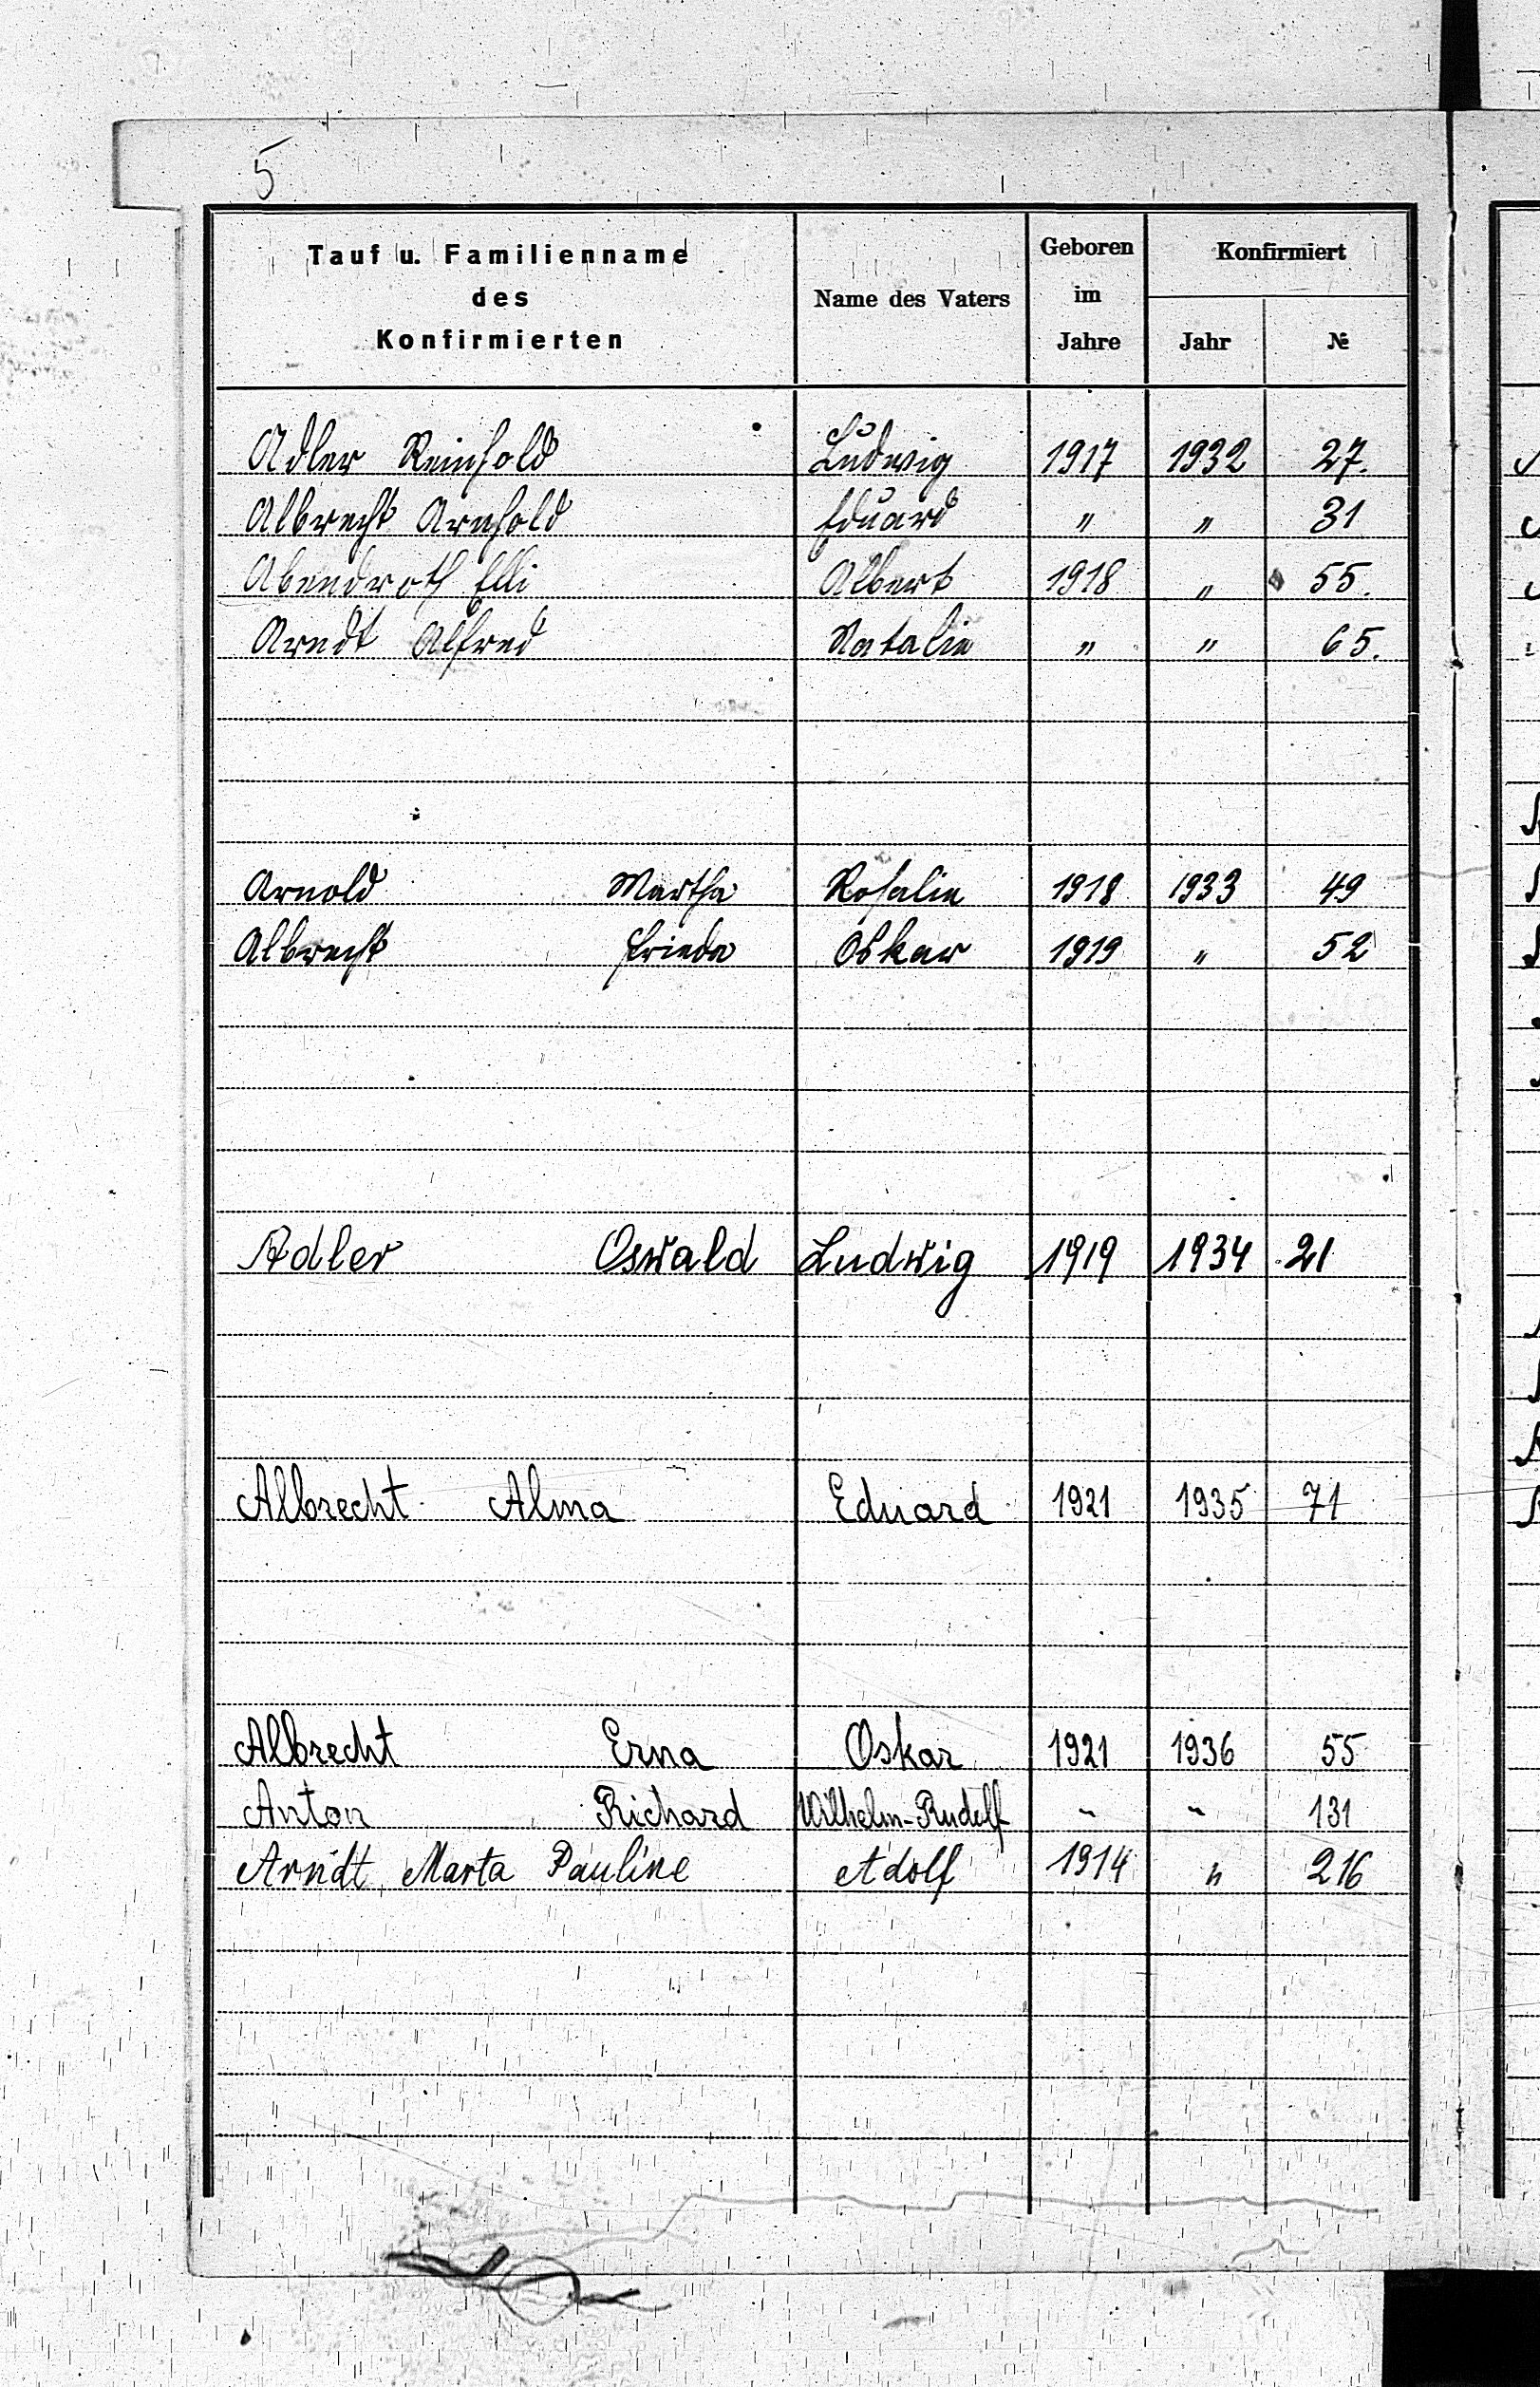 5
Tauf u. Familienname des Konfirmierten | Name des Vaters | Geboren im Jahre | Konfirmiert Jahr | №
Adler Reinhold Ludwig 1917 1932 27.
Albrecht Arnhold Eduard " " 31
Abendroth Elli Albert 1918 " 55.
Arndt Alfred Natalie " " 65.
Arnold Martha Rosalie 1918 1933 49
Albrecht Frieda Oskar 1919 " 52
Adler Oswald Ludwig 1919 1934 21
Albrecht Alma Eduard 1921 1935 71
Albrecht Erna Oskar 1921 1936 55
Anton Richard Wilhelm-Rudolf " " 131
Arndt, Marta Pauline Adolf 1914 " 216